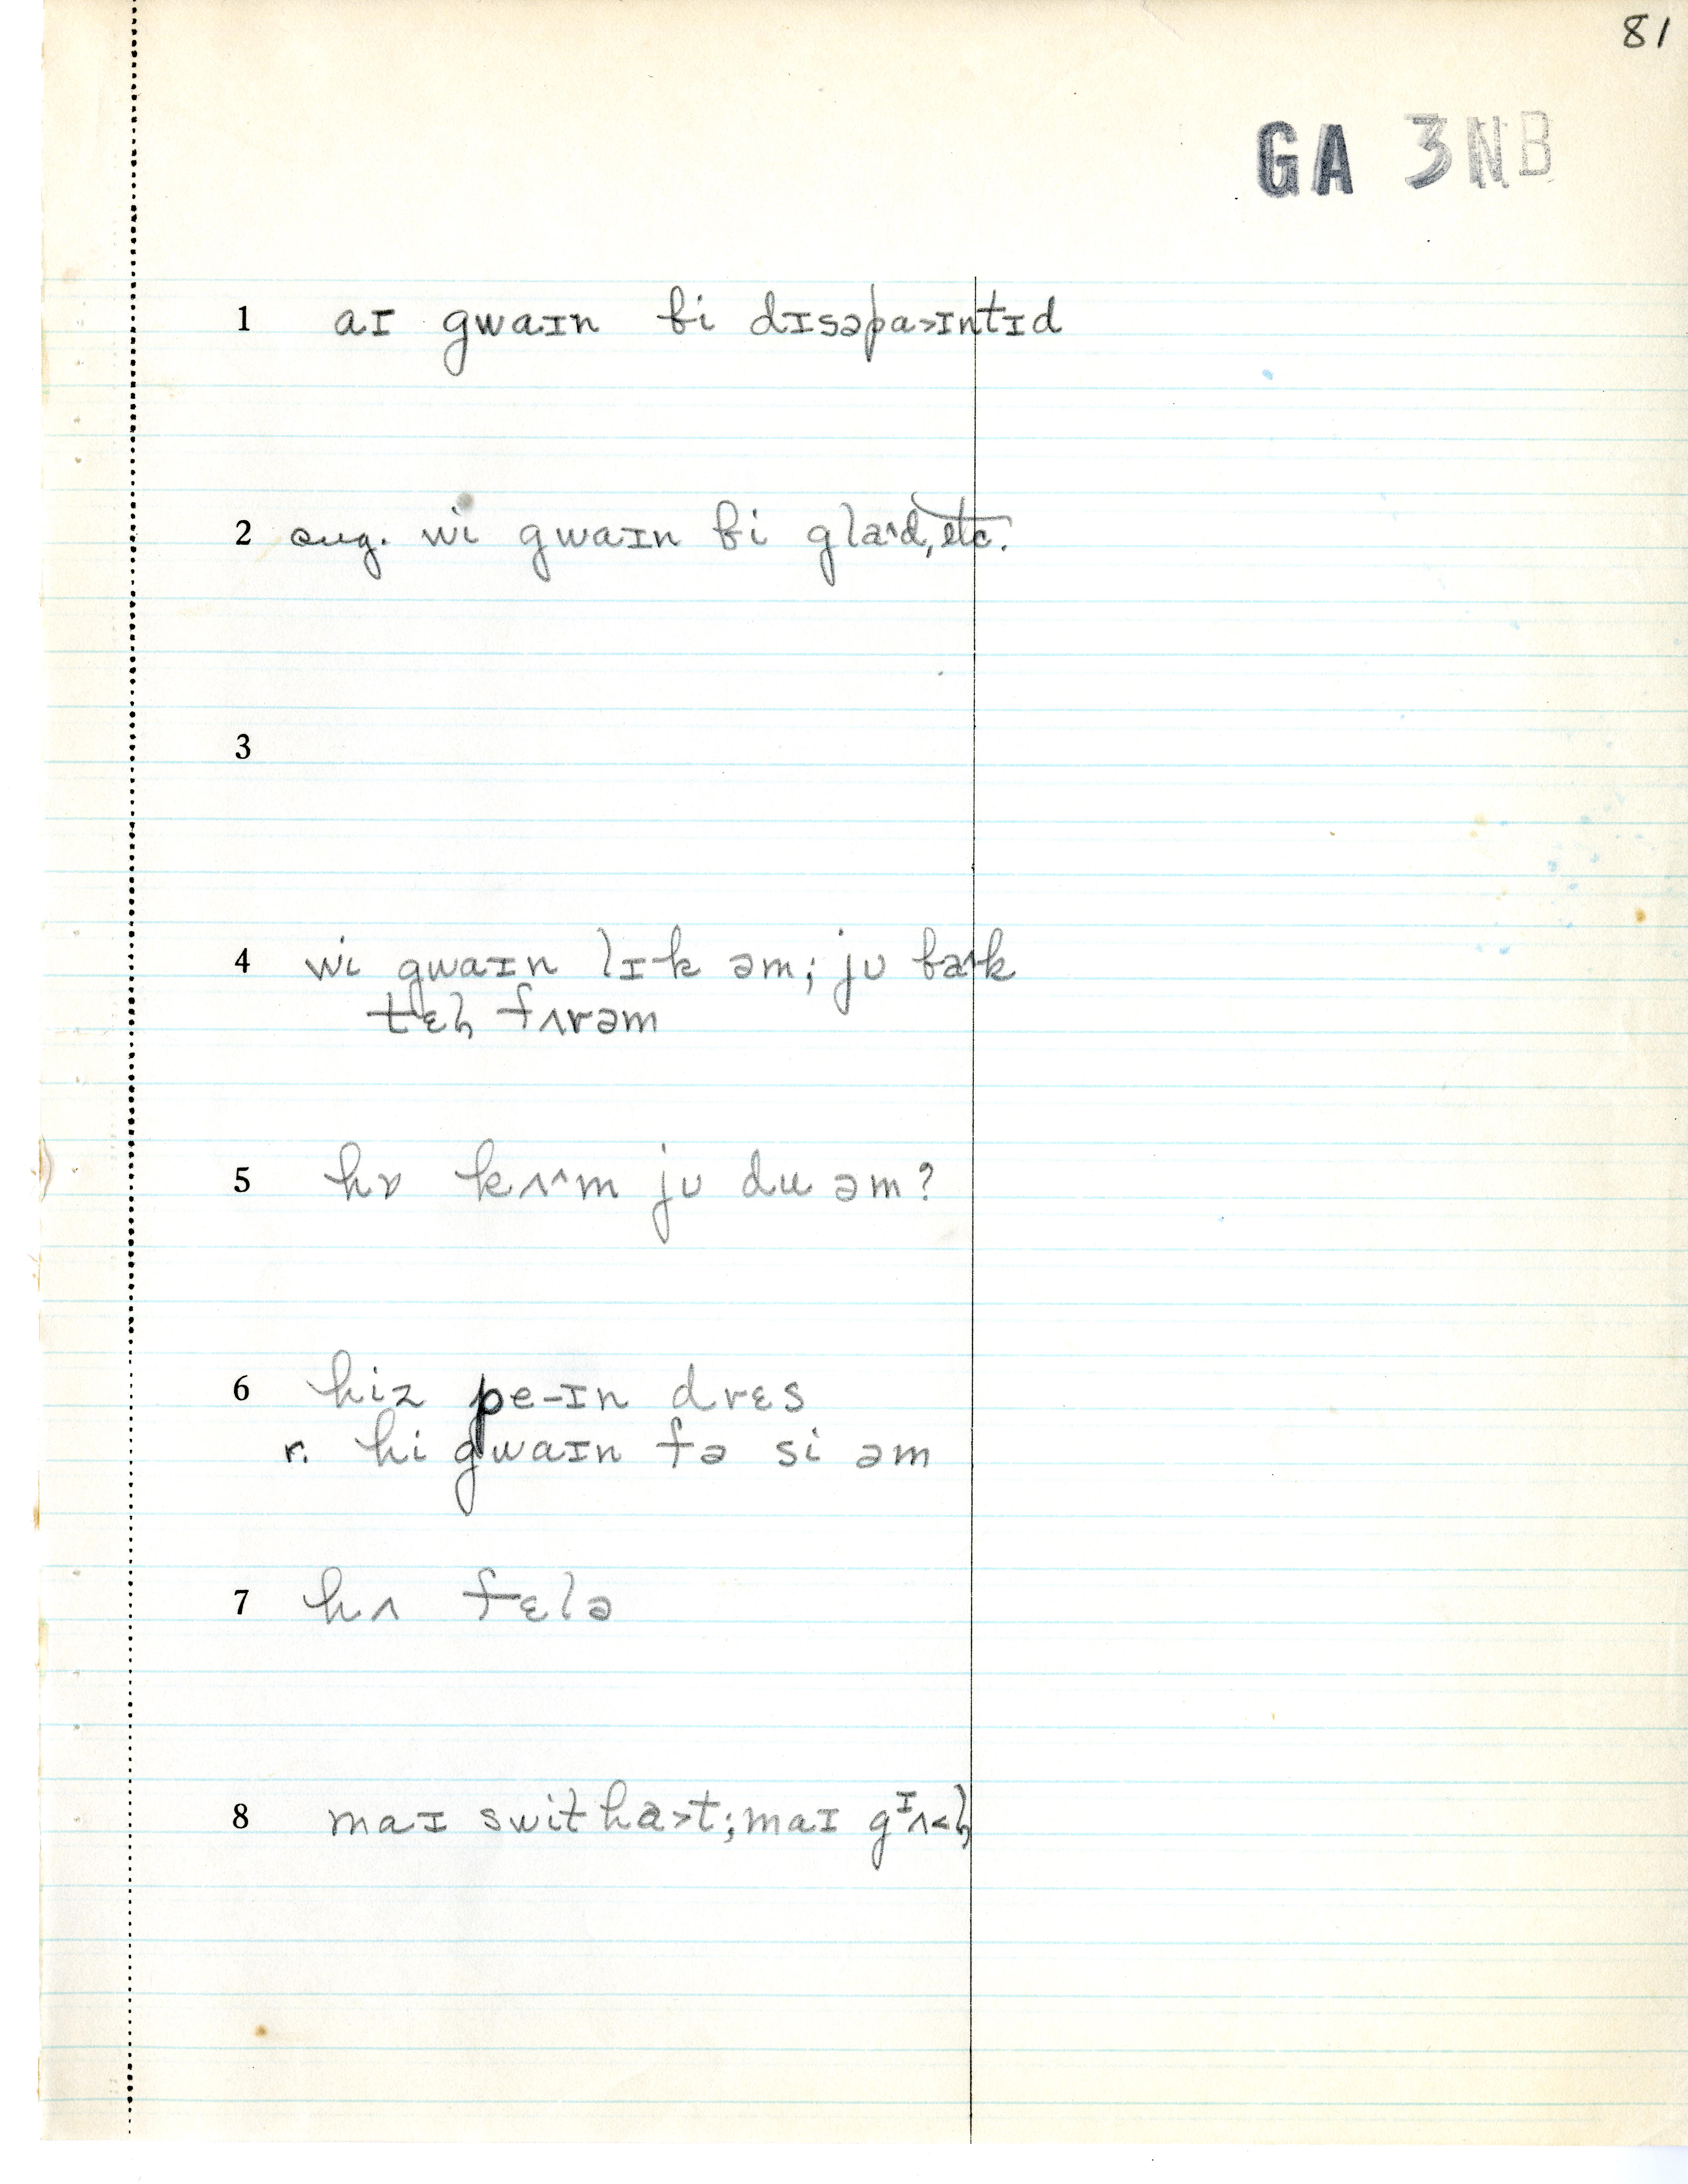 81
GA 3NB
1 aɪ gwaɪn bi dɪsəpa>ɪntɪd
2 sug. wi gwaɪn bi gla^d, etc.
3
4 wi gwaɪn lɪ-k əm; jʊ ba^k
tɛl̩ fʌrəm
5 hʊ kʌ^m jʊ du əm?
6 hiz pe-ɪn drɛs
r. hi gwaɪn fə si əm
7 hʌ fɛlə
8 maɪ swit ha>t; maɪ gᶦʌ<l̩